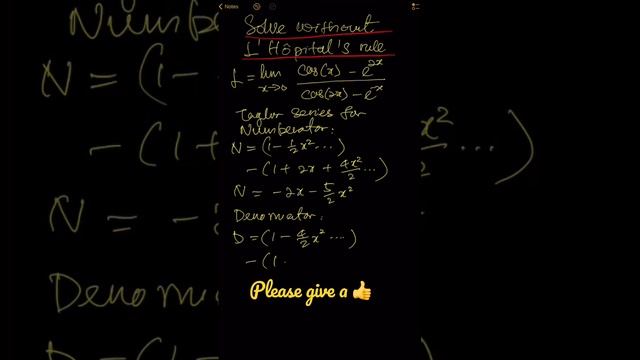 Notes
Solve without
L'Hôpital's rule
L = lim x→0 (cos(x) - e^2x) / (cos(2x) - e^-x)
Taylor series for
Numberator:
N = (1 - 1/2 x² ...)
- (1 + 2x + 4x²/2 ...)
N = - 2x - 5/2 x²
Denomiator:
D = (1 - 4/2 x² ...)
- (1 .
Please give a 👍